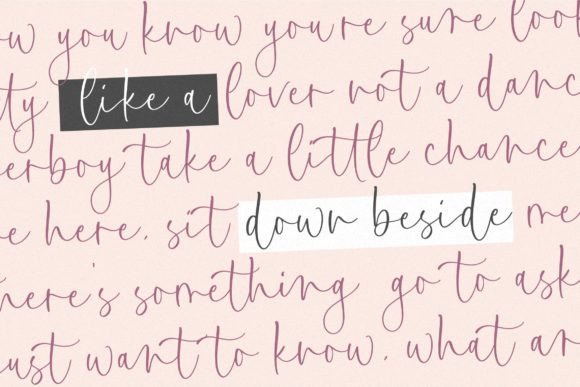 ow you know you're sure look
ty like a lover not a danc
erboy take a little chance
e here. sit down beside me
here's something go to ask
ust want to know. what ar